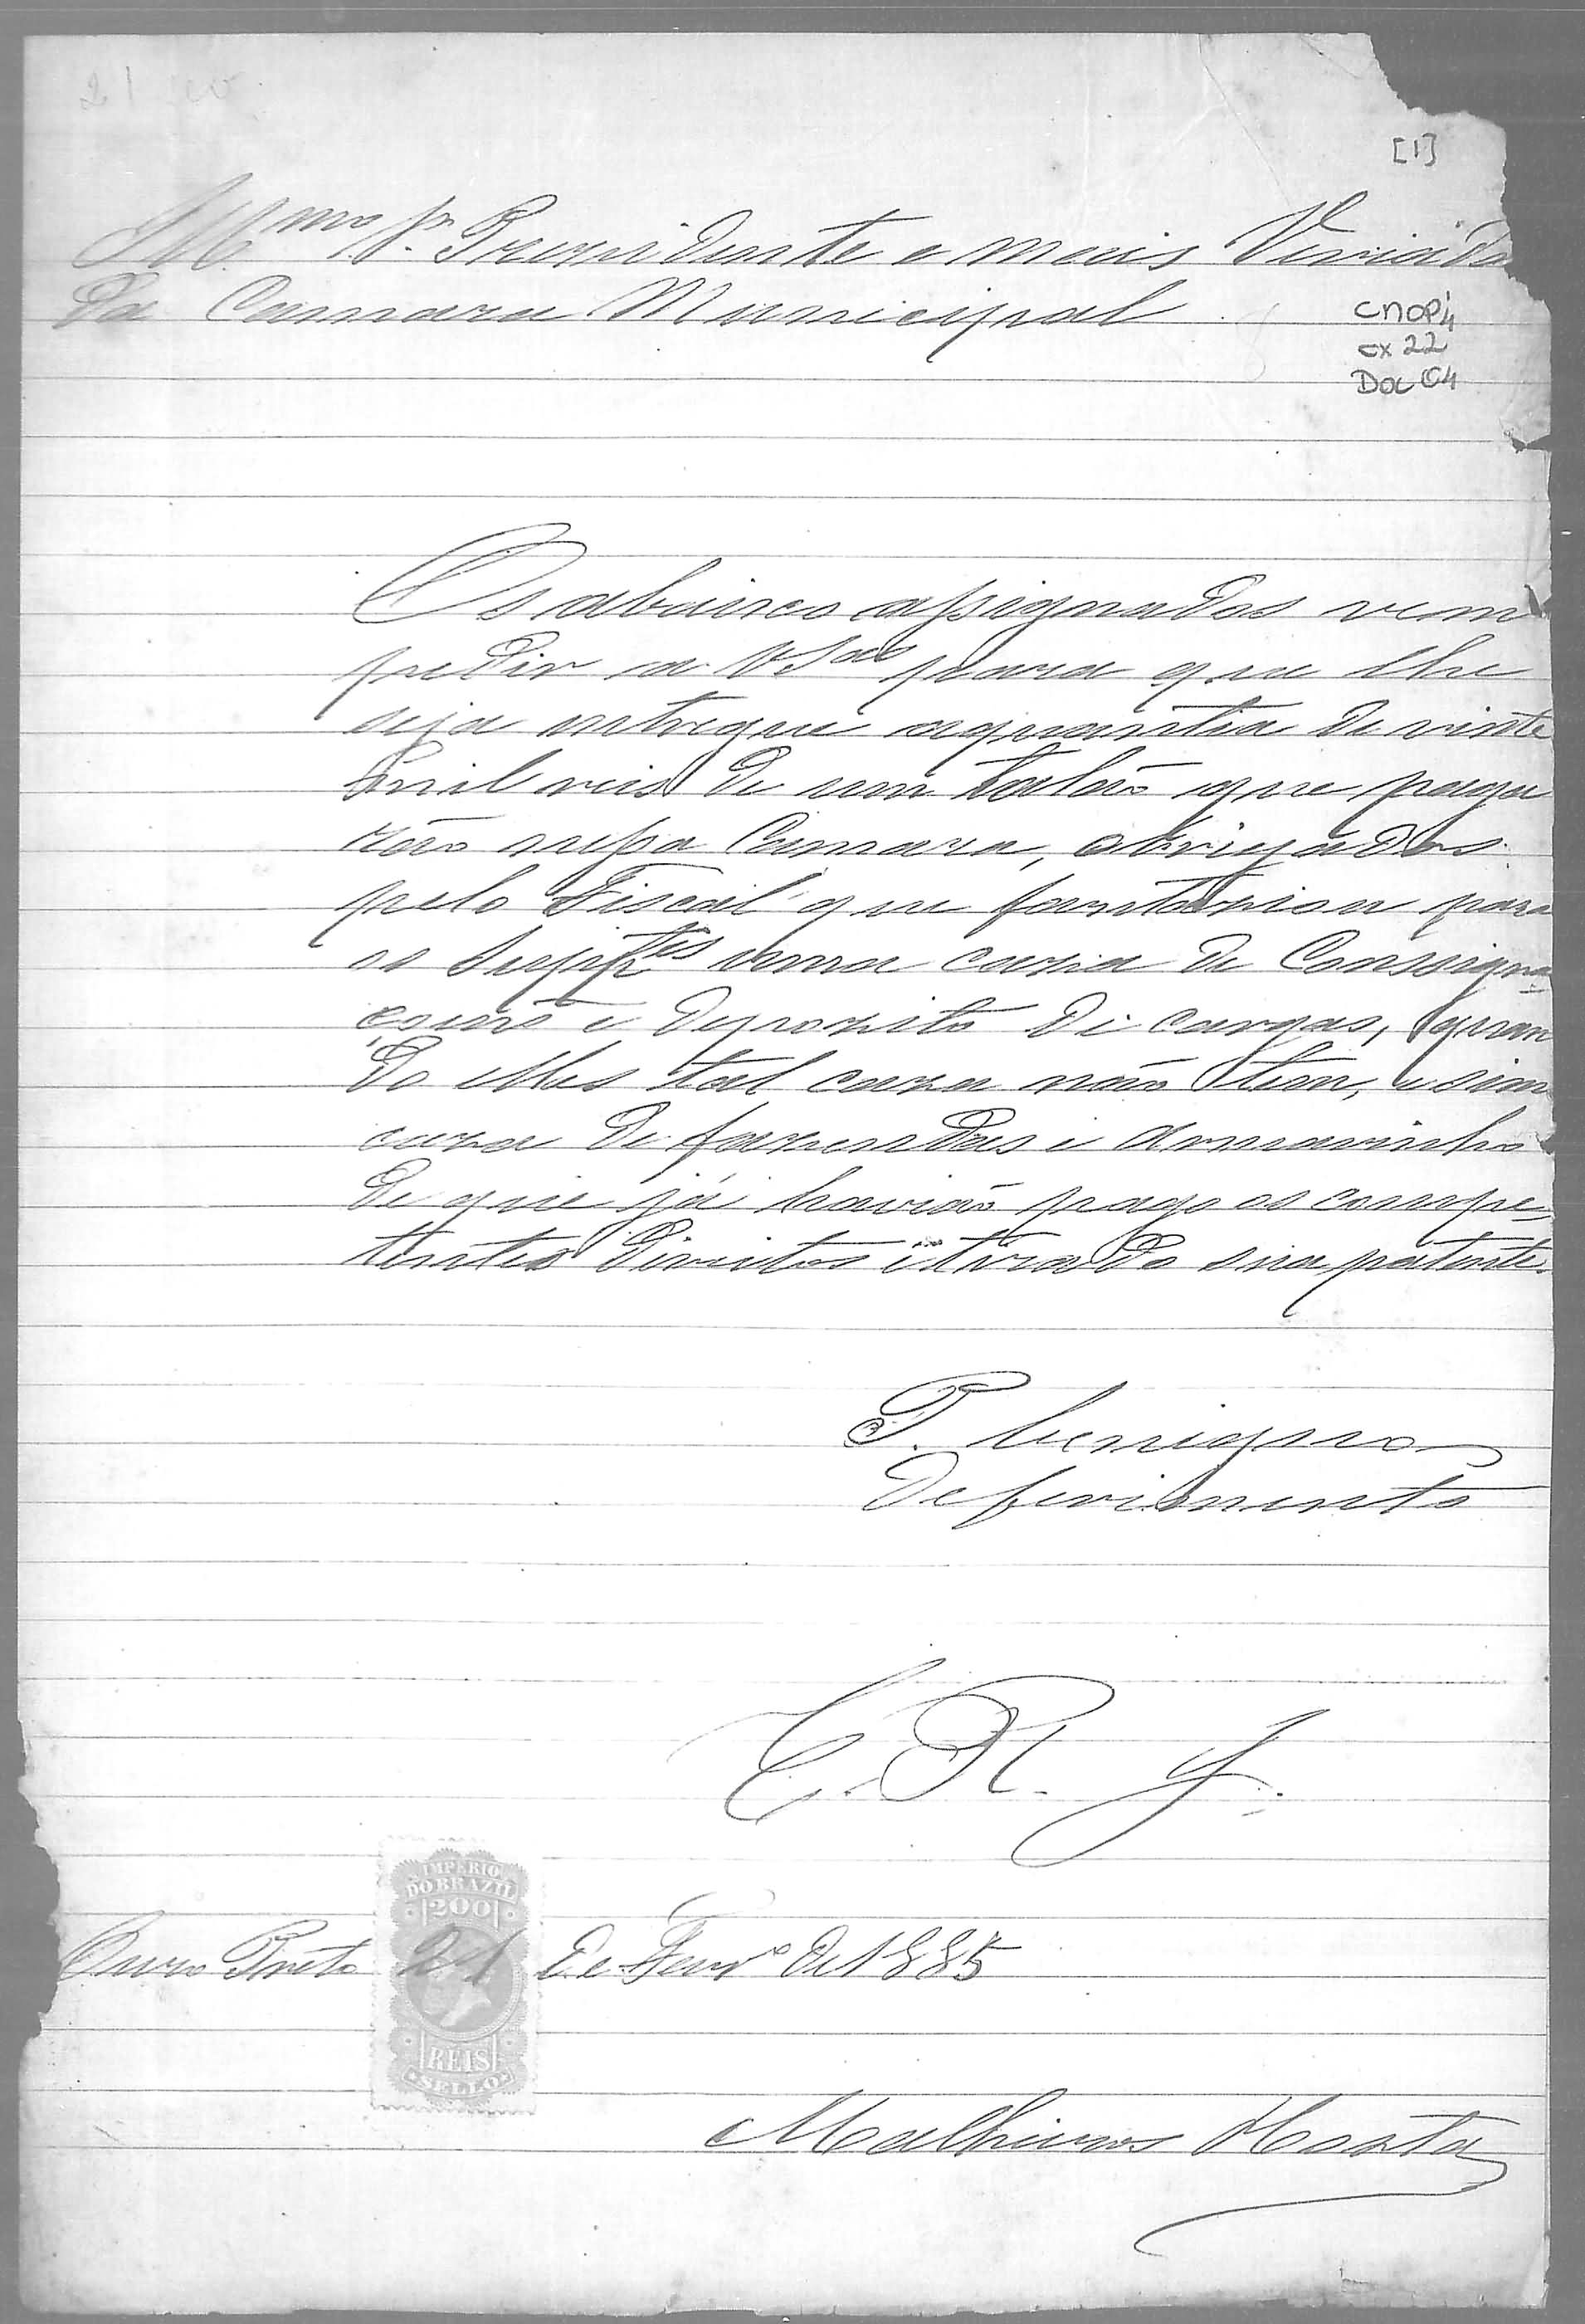 [1]
Ill.mo Sr. Prezidente e mais Veriado
da Camara Municipal
CMOP
cx 22
Doc 04
Os abaixo assignados vem
pedir a VSas para que lhe
seja entregue a quantia de vinte
mil reis de um talão que paga
rão nessa Camara, obrigados
pelo Fiscal que fantaziou para
os Suppes uma caza de Consigna
çoens e depozito de cargas, quan
do elles tal caza não tem, e sim
caza de fazendas e armarinho
de que já havião pago os compe
tentes direitos e tirado sua patente.
P. benigno
Deferimento
E. R. J.
IMPERIO
DO BRAZIL
200
REIS
SELLO
Ouro Preto 21 de Fevro de 1885
Malheiros Horta